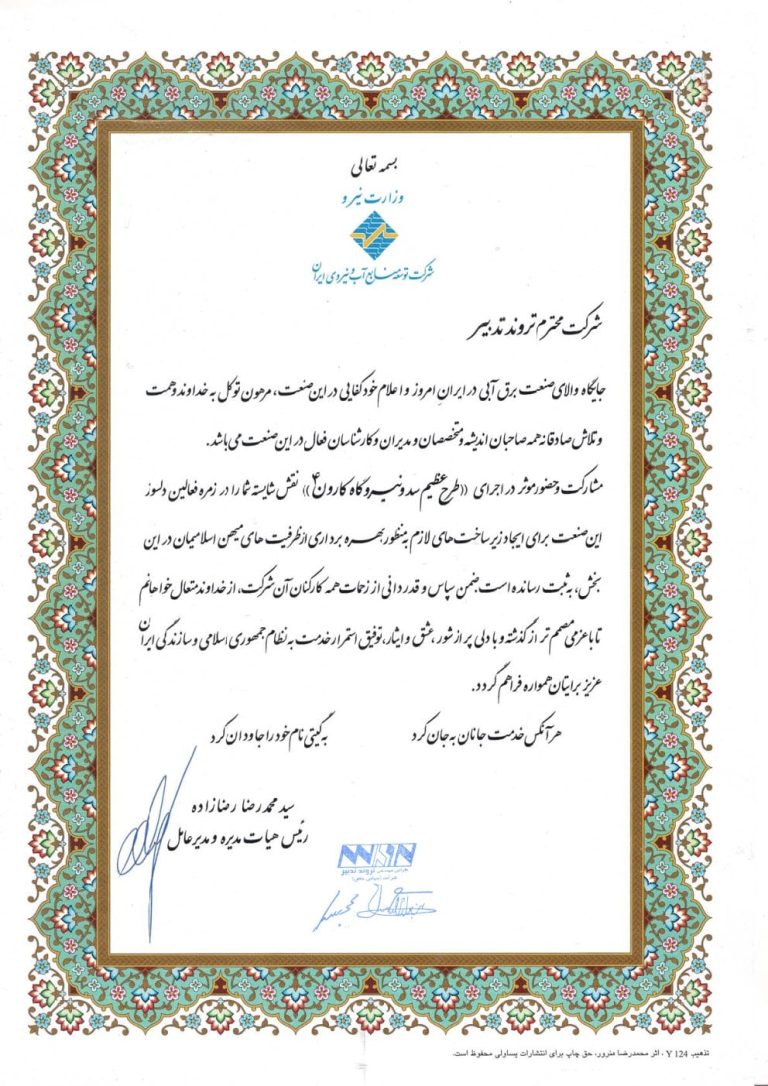 بسمه تعالی
وزارت نیرو
شرکت توسعه منابع آب و نیروی ایران
شرکت محترم تروند تدبیر
جایگاه والای صنعت برق آبی در ایرانِ امروز و اعلام خودکفایی در این صنعت، مرهون توکل به خداوند و همت
و تلاش صادقانه همه صاحبان اندیشه و متخصصان و مدیران و کارشناسان فعال در این صنعت می باشد.
مشارکت و حضور موثر در اجرای ((طرح عظیم سد و نیروگاه کارون ۴)) نقش شایسته شما را در زمره فعالین دلسوز
این صنعت برای ایجاد زیرساخت های لازم به منظور بهره برداری از ظرفیت های میهن اسلامیمان در این
بخش، به ثبت رسانده است. ضمن سپاس و قدردانی از زحمات همه کارکنان آن شرکت، از خداوند متعال خواهانم
تا با عزمی مصمم تر از گذشته و با دلی پر از شور، عشق و ایثار، توفیق استمرار خدمت به نظام جمهوری اسلامی و سازندگی ایران
عزیز برایتان همواره فراهم گردد.
هر آنکس خدمت جانان به جان کرد به گیتی نام خود را جاودان کرد
سید محمدرضا رضازاده
رئیس هیات مدیره و مدیرعامل
تروند تدبیر
شرکت (سهامی خاص)
تذهیب Y 124 ، اثر محمدرضا مذرور، حق چاپ برای انتشارات یساولی محفوظ است.